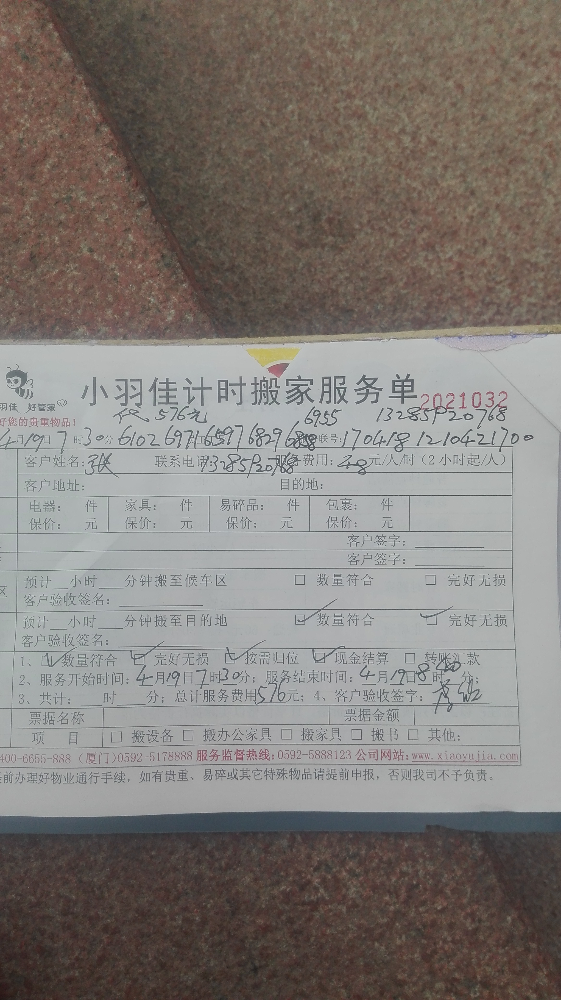 小羽佳计时搬家服务单 2021032
羽佳 好管家
好您的贵重物品！ 代 576元 6955 13285920768
4月19日7时30分 6102 6971 6597 6829 联号：1704181210421700
客户姓名：张 联系电话13285920768 服务费用：48元/人/时（2小时起/人）
客户地址： 目的地：
电器： 件 家具： 件 易碎品： 件 包裹： 件
保价： 元 保价： 元 保价： 元 保价： 元
客户签字：
客户签字：
预计 小时 分钟搬至候车区 □ 数量符合 □ 完好无损
客户验收签名：
预计 小时 分钟搬至目的地 ☑ 数量符合 ☑ 完好无损
客户验收签名：
1、☑ 数量符合 ☑ 完好无损 ☑ 按需归位 ☑ 现金结算 □ 转账汇款
2、服务开始时间：4月19日7时30分；服务结束时间：4月19日8时 分；
3、共计： 时 分；总计服务费用576元；4、客户验收签字：
票据名称 票据金额
项 目 □ 搬设备 □ 搬办公家具 □ 搬家具 □ 搬书 □ 其他：
400-6655-888（厦门）0592-5178888 服务监督热线：0592-5888123 公司网站：www.xiaoyujia.com
提前办理好物业通行手续，如有贵重、易碎或其它特殊物品请提前申报，否则我司不予负责。